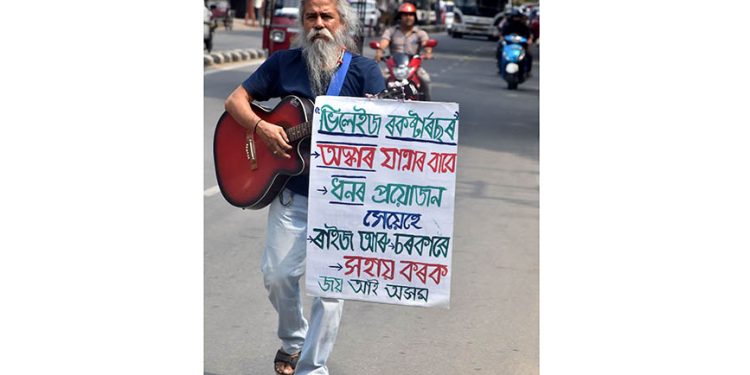 "ভিলেইজ ৰকষ্টাৰ্ছৰ"
→অস্কাৰ যাত্ৰাৰ বাবে
→ধনৰ প্ৰয়োজন
সেয়েহে
→ৰাইজ আৰু চৰকাৰে
→সহায় কৰক
জয় আই অসম